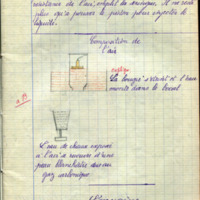 résistance de l'air, remplit la seringue. Il ne reste
plus qu'à pousser le piston pour injecter le
liquide.
Composition de
l'air
La bougie s'éteint et l'eau
monte dans le bocal
L'eau de chaux exposée
à l'air se recouvre d'une
peau blanchâtre due au
gaz carbonique